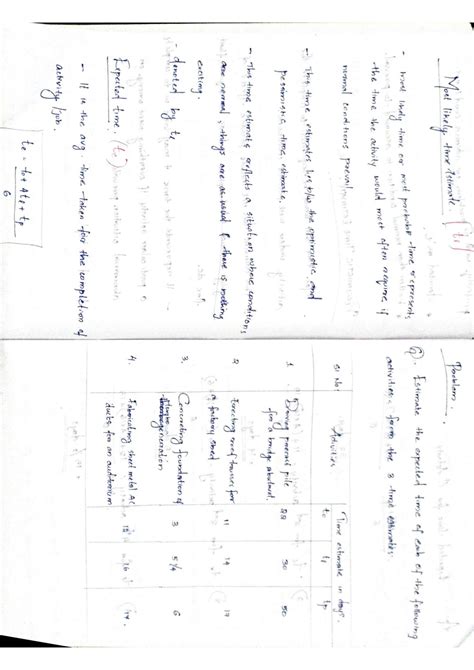 Most likely time estimate (tL)
- most likely time or most probable time represents
the time the activity would most often require if
normal conditions prevail.
- This time estimates lies b/w the optimistic and
pessimistic time estimate.
- This time estimate reflects a situation where conditions
are normal, things are as usual & there is nothing
exciting.
denoted by tL
Expected time. (te)
- It is the avg. time taken for the completion of
activity/job.
te = to + 4tL + tp
6
Problem.
Q). Estimate the expected time of each of the following
activities form the 3 time estimates.
Sl No: Activities Time estimate in days.
to tL tp
1. Driving pile
for a bridge abutment. 28 30 50
2 Erecting roof trusses for
a factory shed 11 14 17
3. Concreting foundation of
3 5 1/4 6
4. Fabricating sheet metal AC
ducts for an auditorium 16